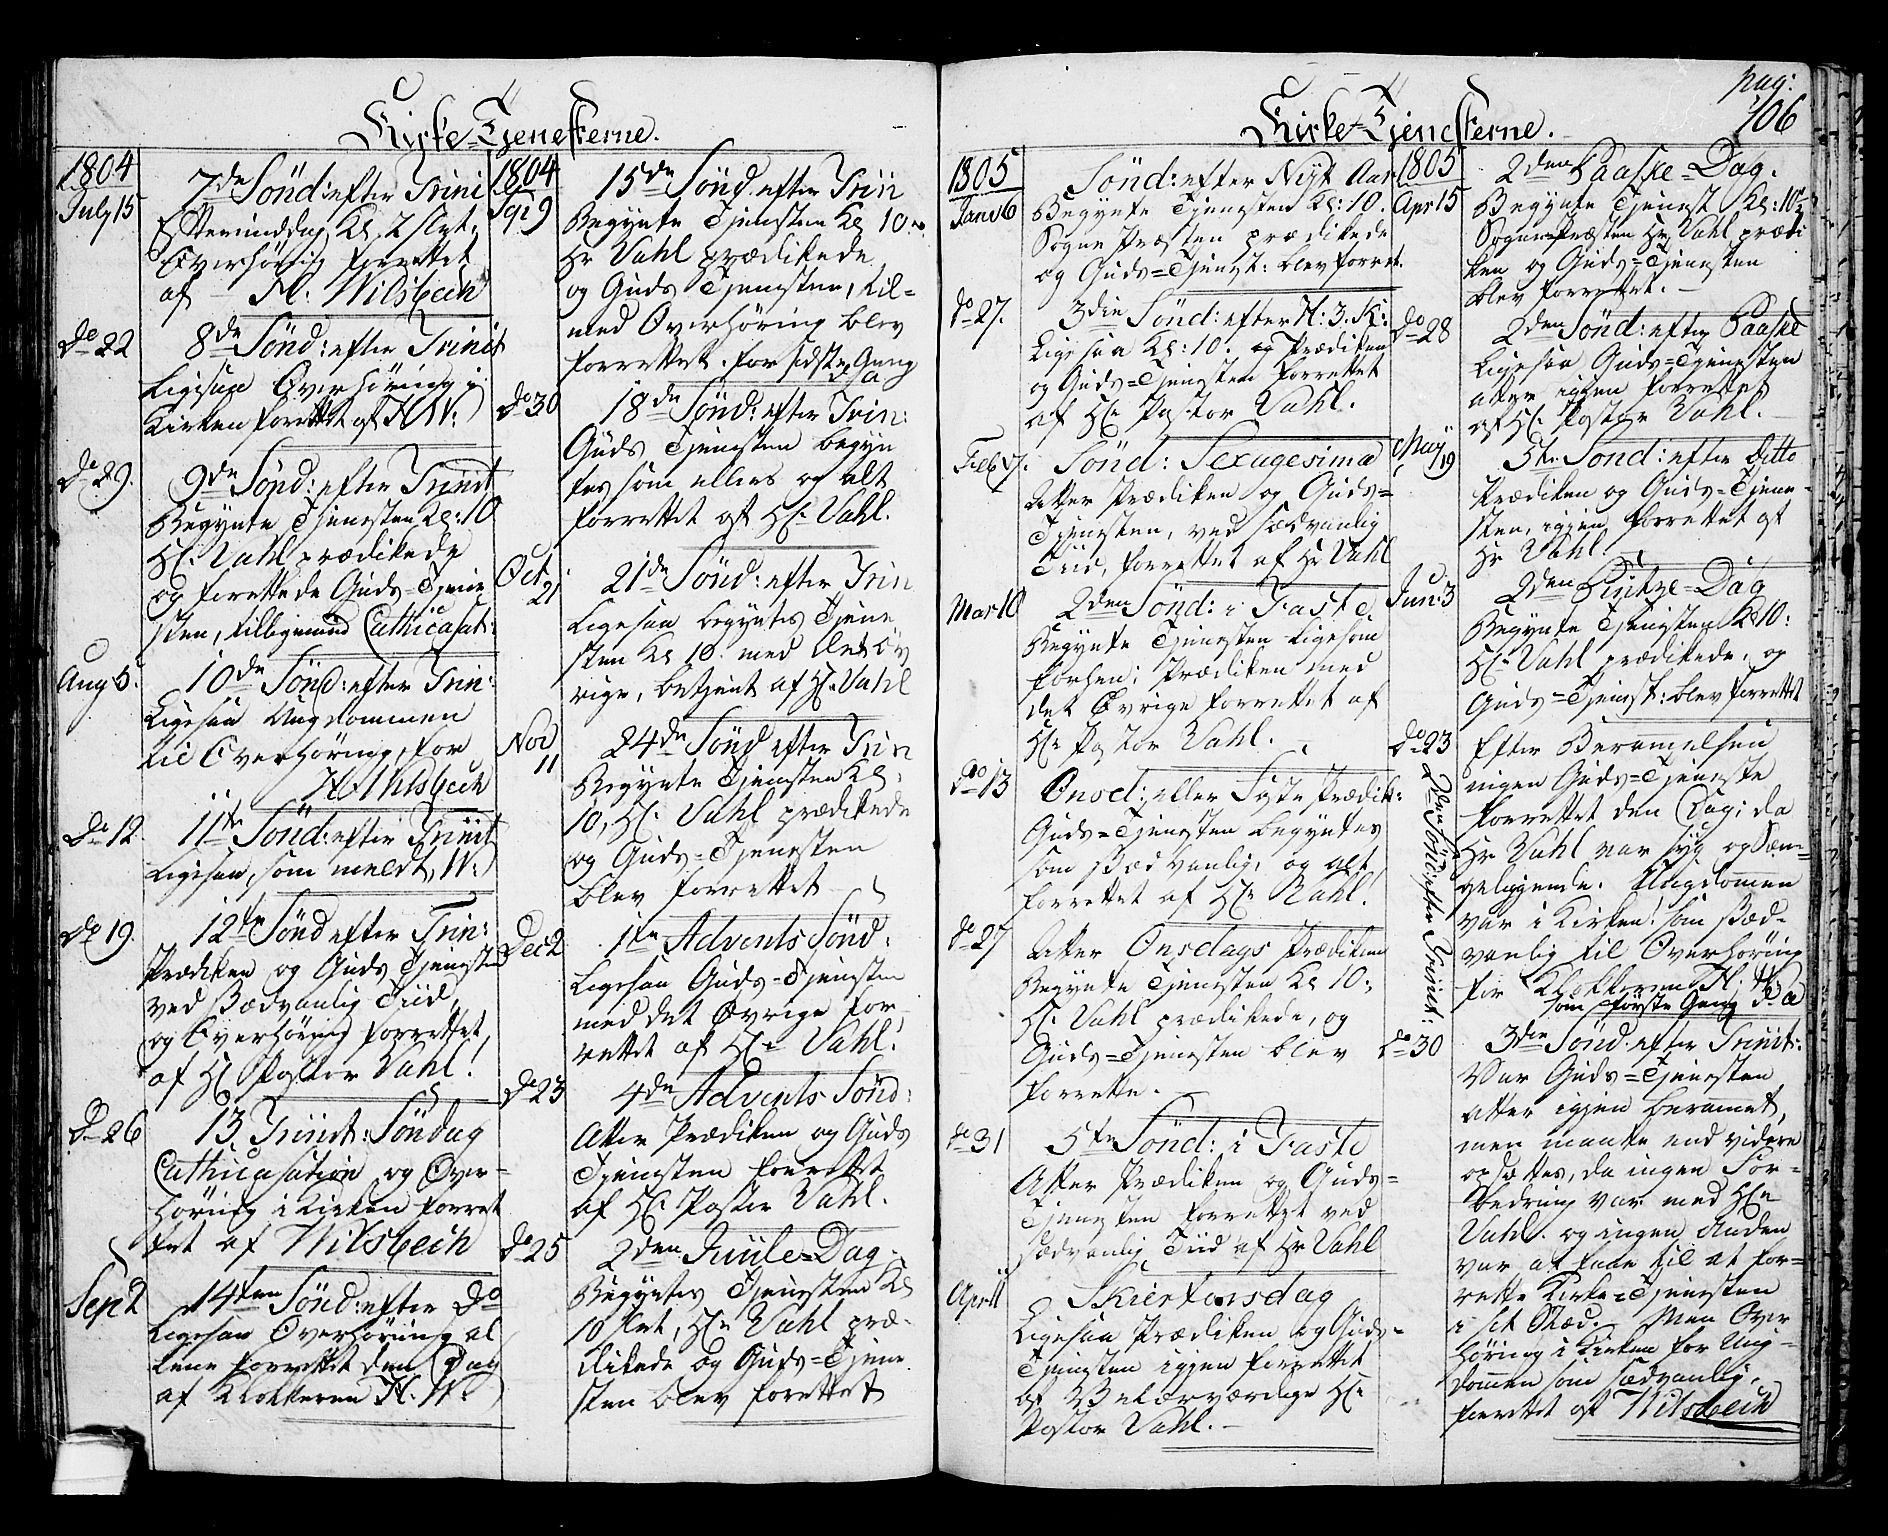 Kirke-Tjenesterne.
1804
July 15
7de Sönd: efter Trini
Eftermiddag Kl. 2 slet,
Overhöring forrettet
af H. Wilsbech
Do 22
8de Sönd: efter Trinit
Ligesaa Overhöring i
Kirken forrettet af H W:
Do 29.
9de Sönd: efter Trinit
Begynte Tjenesten Kl: 10
Hr. Vahl prædikede
og forrettede Guds-Tjene
sten, tilligemed Cathicasat:
Aug 5.
10de Sönd: efter Trin:
Ligesaa Ungdommen
til Overhöring, for
H. Wilsbech
Do 12.
11te Sönd: efter Trinit
Ligesaa, som meldt, W:
Do 19.
12te Sönd efter Trin:
Prædiken og Guds Tjenesten
ved Sædvanlig Tiid,
og Overhöring forrettet,
af Hr Pastor Vahl!
Do 26
13. Trinit: Söndag
Cathicasation og Over-
höring i Kirken forret
tet af Wilsbech
Sep 2
14ten Sönd: efter Do
Ligesaa Overhöring al
lene forrettet den Dag
af Klokkeren H. W.
1804
Sep 9
15de Sönd efter Trin
Begynte Tjenesten Kl 10
Hr Vahl prædikede
og Guds Tjenesten, til-
med Overhöring blev
forrettet. for sidste Gang
Do 30
18de Sönd: efter Trin:
Guds Tjenesten begyn
tes som ellers og alt
forrettet af Hr. Vahl.
Oct. 21
21de Sönd: efter Trin
Ligesaa begyntes Tjene
sten Kl 10 med det öv
rige, betjent af Hr. Vahl
Nov 11
24de Sönd efter Trin
Begynte Tjenesten Kl:
10, Hr. Vahl prædikede
og Guds-Tjenesten
blev forrettet
Dec 2
1te Advents Sönd:
Ligesaa Guds-Tjenesten
med det Øvrige for-
rettet af Hr. Vahl!
Do 23
4de Advents Sönd:
Atter Prædiken og Guds
Tjenesten forrettet
af Hr. Pastor Vahl.
Do 25
2den Juule-Dag.
Begyntes Tjenesten Kl
10 slet, Hr. Vahl præ-
dikede og Guds-Tjene
sten blev forrettet
Kirke-Tjenesterne.
pag:
106
1805
Janv 6
Sönd: efter Nyt Aar
Begynte Tjenesten Kl: 10.
Sogne Præsten prædikede
og Guds-Tjenest: blev forret.
Do 27.
3die Sönd: efter H. 3. K:
Ligesaa Kl: 10. og Prædiken
og Guds-Tjenesten forrettet
af Hr. Pastor Vahl.
Feb 17.
Sönd: Sexagesima
Atter Prædiken og Guds-
Tjenesten, ved sædvanlig
Tiid, forrettet af Hr Vahl
Mar 10
2den Sönd: i Faste
Begynte Tjenesten ligesom
forhen; Prædiken med
det Øvrige forrettet af
Hr. Pastor Vahl.
Do 13
Onsd: eller Faste Prædik:
Guds-Tjenesten begyntes
som Sædvanlig, og alt
forrettet af Hr. Vahl!
Do 27
Atter Onsdags Prædiken
Begynte Tjenesten Kl 10.
Hr. Vahl prædikede, og
Guds-Tjenesten blev
forrette.
Do 31
5te Sönd: i Faste
Atter Prædiken og Guds-
Tjenesten forrettet ved
sædvanlig Tiid af Hr Vahl
April 11
Skiertorsdag
Ligesaa Prædiken og Guds-
Tjenesten igjen forrettet
af Velærværdige Hr.
Pastor Vahl.
1805
Apr 15
2den Paaske-Dag.
Begynte Tjenest Kl: 10
Sogne-Præsten Hr. Vahl prædi
ken og Guds-Tjenesten
blev forrettet.
Do 28
2den Sönd: efter Paaske
Ligesaa Guds-Tjenesten
atter igjen forrettet
af Hr. Pastor Vahl.
May 19
5te Sönd: efter ditto
Prædiken og Guds-Tjene-
sten, igjen forrettet af
Hr Vahl.
Jun: 3
2den Pintze-Dag
Begynte Tjenesten Kl 10:
Hr. Vahl prædikede, og
Guds-Tjenest: blev forrettet
Do 23
2den Sönd: efter Trinit:
Efter Berammelsen
ingen Guds-Tjeneste
forrettet den Dag; da
Hr Vahl var syg og Sæn-
geliggende. Ungdomen
var i Kirken! som Sæd-
vanlig til Overhöring
for Klokkeren H. W.
som förste Gang
Do 30
3die Sönd. efter Trinit:
Var Guds-Tjenesten
atter igjen beramet,
men maatte end videre
opsættes, da ingen For-
bedring var med Hr.
Vahl. og ingen Anden
var at faae til at for-
rette Kirke-Tjenesten
i sit Stæd. Men Over
höring i Kirken for Ung-
domen som sædvanlig,
forrettet af Wilsbech